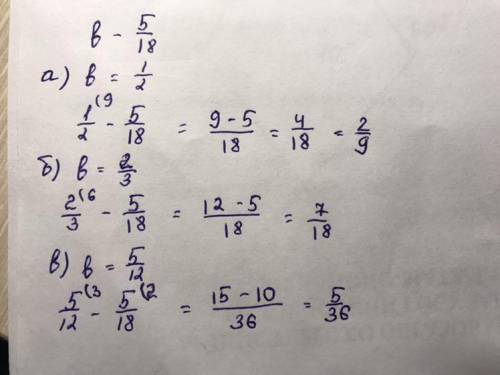 в - 5/18
а) в = 1/2
1/2 (9 - 5/18 = 9-5/18 = 4/18 = 2/9
б) в = 2/3
2/3 (6 - 5/18 = 12-5/18 = 7/18
в) в = 5/12
5/12 (3 - 5/18 (2 = 15-10/36 = 5/36